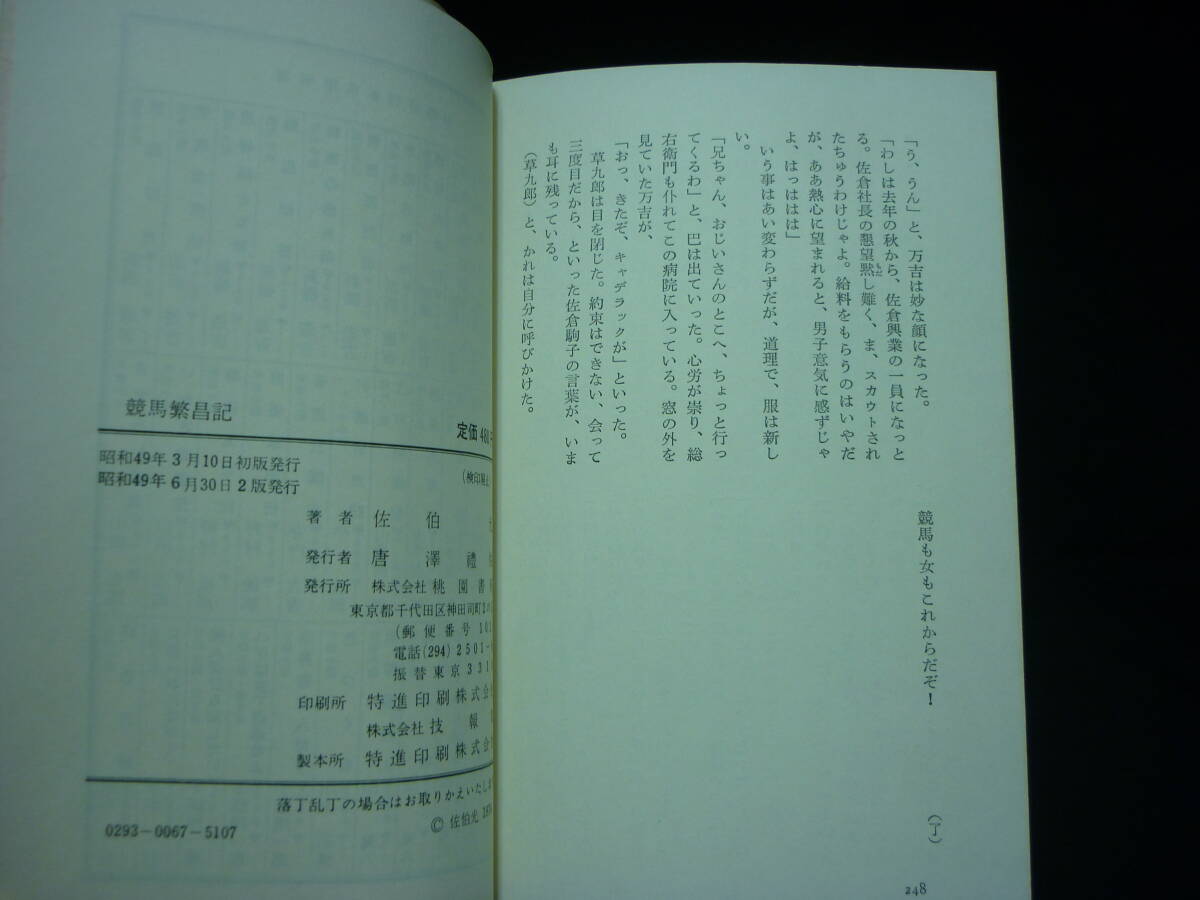 「う、うん」と、万吉は妙な顔になった。
「わしは去年の秋から、佐倉興業の一員になっと
る。佐倉社長の懇望黙し難く、ま、スカウトされ
たちゅうわけじゃよ。給料をもらうのはいやだ
が、ああ熱心に望まれると、男子意気に感ずじゃ
よ、はっははは」
いう事はあい変わらずだが、道理で、服は新し
い。
「兄ちゃん、おじいさんのとこへ、ちょっと行っ
てくるわ」と、巴は出ていった。心労が崇り、総
右衛門も仆れてこの病院に入っている。窓の外を
見ていた万吉が、
「おっ、きたぞ、キャデラックが」といった。
草九郎は目を閉じた。約束はできない、会って
三度目だから、といった佐倉駒子の言葉が、いま
も耳に残っている。
（草九郎）と、かれは自分に呼びかけた。
競馬も女もこれからだぞ！
（了）
248
競馬繁昌記
定価 480
昭和49年3月10日初版発行
昭和49年6月30日2版発行
（検印廃止
著者 佐伯
発行者 唐澤禮
発行所 株式会社 桃園書
東京都千代田区神田司町2の
（郵便番号101
電話(294)2501-
振替東京331
印刷所 特進印刷株式会
株式会社 技報
製本所 特進印刷株式会
落丁乱丁の場合はお取りかえいたしま
© 佐伯光 197
0293-0067-5107